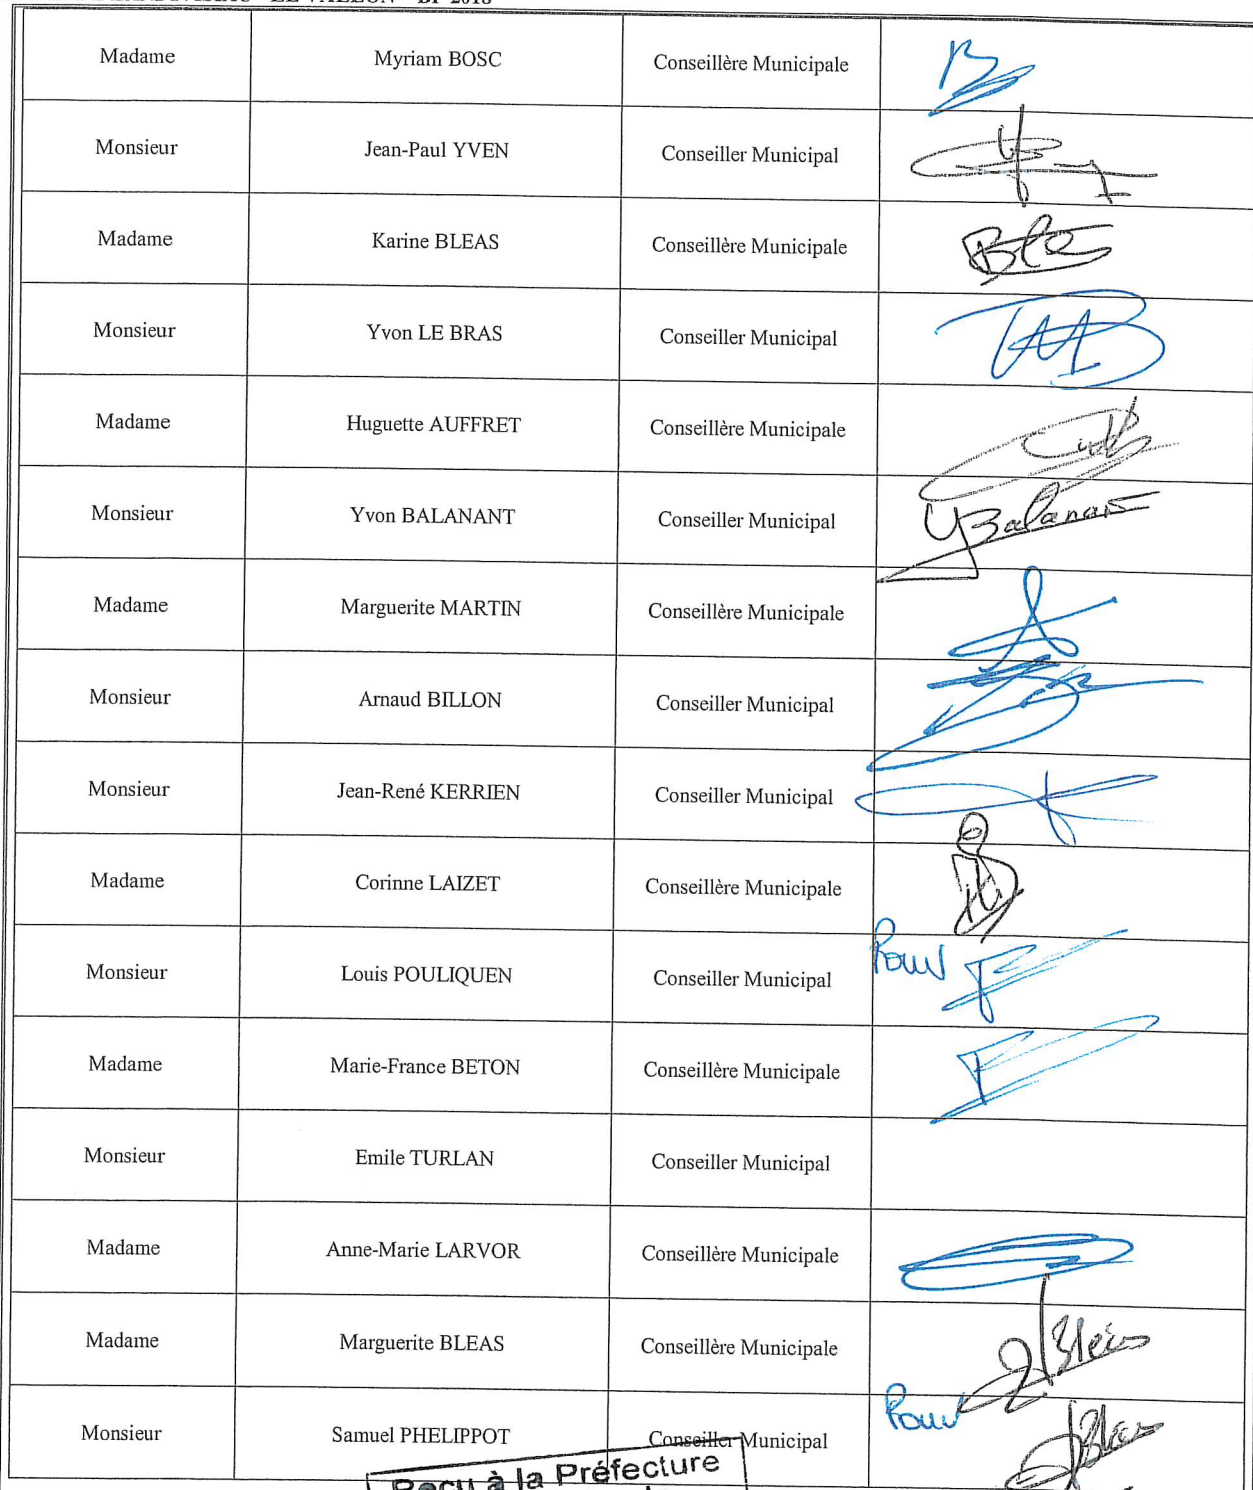 LE VALLON - BP 2018
Madame Myriam BOSC Conseillère Municipale
Monsieur Jean-Paul YVEN Conseiller Municipal
Madame Karine BLEAS Conseillère Municipale
Monsieur Yvon LE BRAS Conseiller Municipal
Madame Huguette AUFFRET Conseillère Municipale
Monsieur Yvon BALANANT Conseiller Municipal
Madame Marguerite MARTIN Conseillère Municipale
Monsieur Arnaud BILLON Conseiller Municipal
Monsieur Jean-René KERRIEN Conseiller Municipal
Madame Corinne LAIZET Conseillère Municipale
Monsieur Louis POULIQUEN Conseiller Municipal Pour
Madame Marie-France BETON Conseillère Municipale
Monsieur Emile TURLAN Conseiller Municipal
Madame Anne-Marie LARVOR Conseillère Municipale
Madame Marguerite BLEAS Conseillère Municipale Bleas
Monsieur Samuel PHELIPPOT Conseiller Municipal Pour Bleas
Reçu à la Préfecture